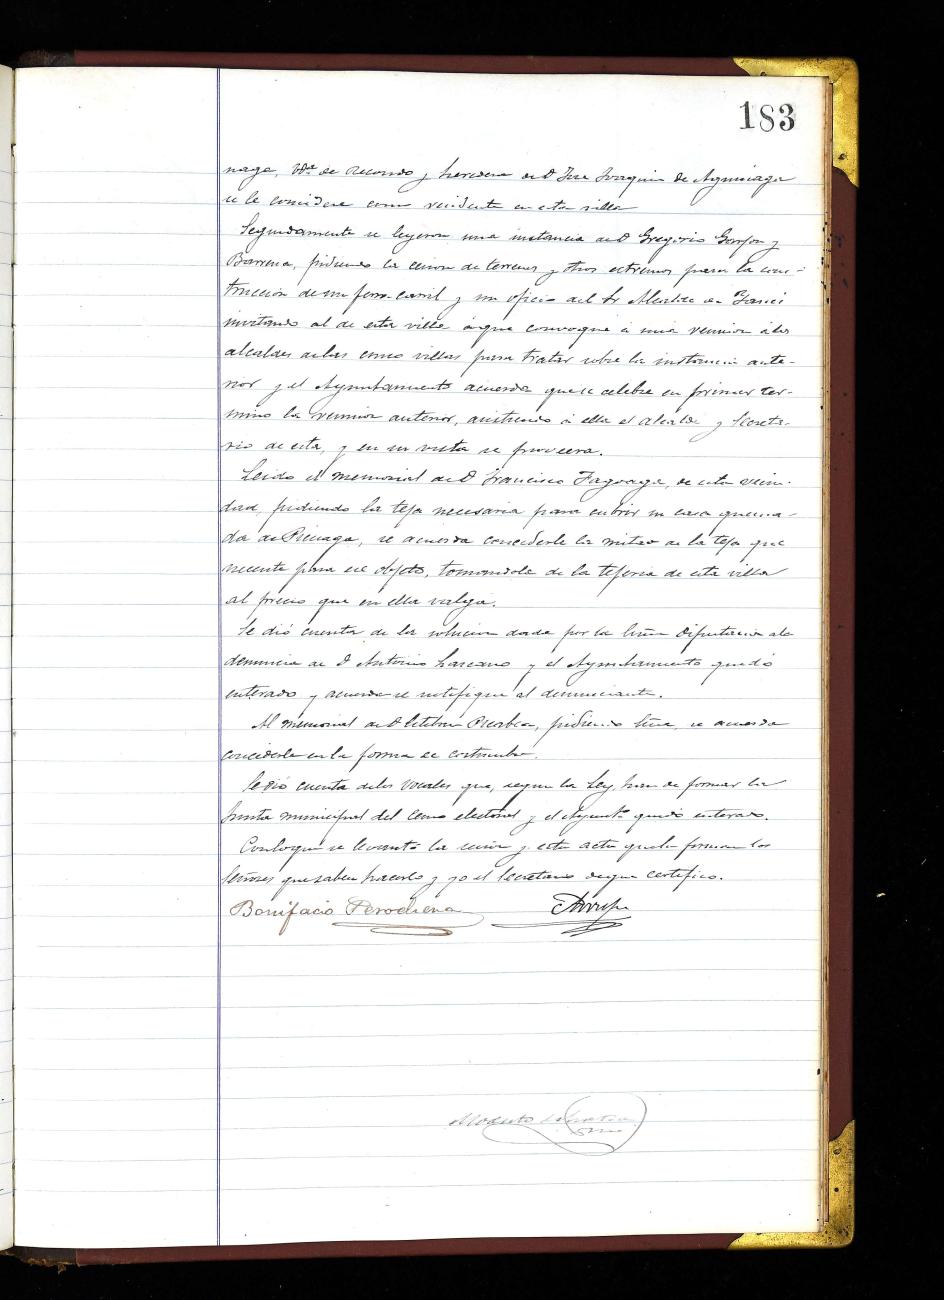 183
naga, Vda. de Recondo y heredera de D. Jose Joaquin de Ayminaga
se le considere como residente en esta villa
Segundamente se leyeron una instancia de D. Gregorio y
Barrena, pidiendo la cesion de terrenos y otros estremos para la cons-
truccion de un ferro-carril y un oficio del Sr Alcalde de Yanci
invitando al de esta villa á que convoque á una reunion á los
alcaldes de las cinco villas para tratar sobre la instancia ante-
rior y el Ayuntamiento acuerda que se celebre en primer ter-
mino la reunion anterior, asistiendo á ella el Alcalde y Secreta-
rio de esta, y en su vista se proveera.
Leido el memorial de D. Francisco Fagoaga, de esta vecin-
dad, pidiendo la teja necesaria para cubrir su casa quema-
da de, se acuerda concederle la mitad de la teja que
necesite para ese objeto, tomandola de la tejeria de esta villa
al precio que en ella valga.
Se dió cuenta de la solucion dada por la Excma Diputacion á la
denuncia de D. Antonio Lascano y el Ayuntamiento quedó
enterado y acuerda se notifique al denunciante.
Al memorial de D. Esteban, pidiendo leña, se acuerda
concederle en la forma de costumbre.
Se dió cuenta de los vocales que, segun la Ley, han de formar la
Junta municipal del censo electoral y el Ayunto quedó enterado.
Con lo que se levantó la sesion y esta acta que la firman los
Señores que saben hacerlo y yo el Secretario de que certifico.
Bonifacio Perochena
Modesto